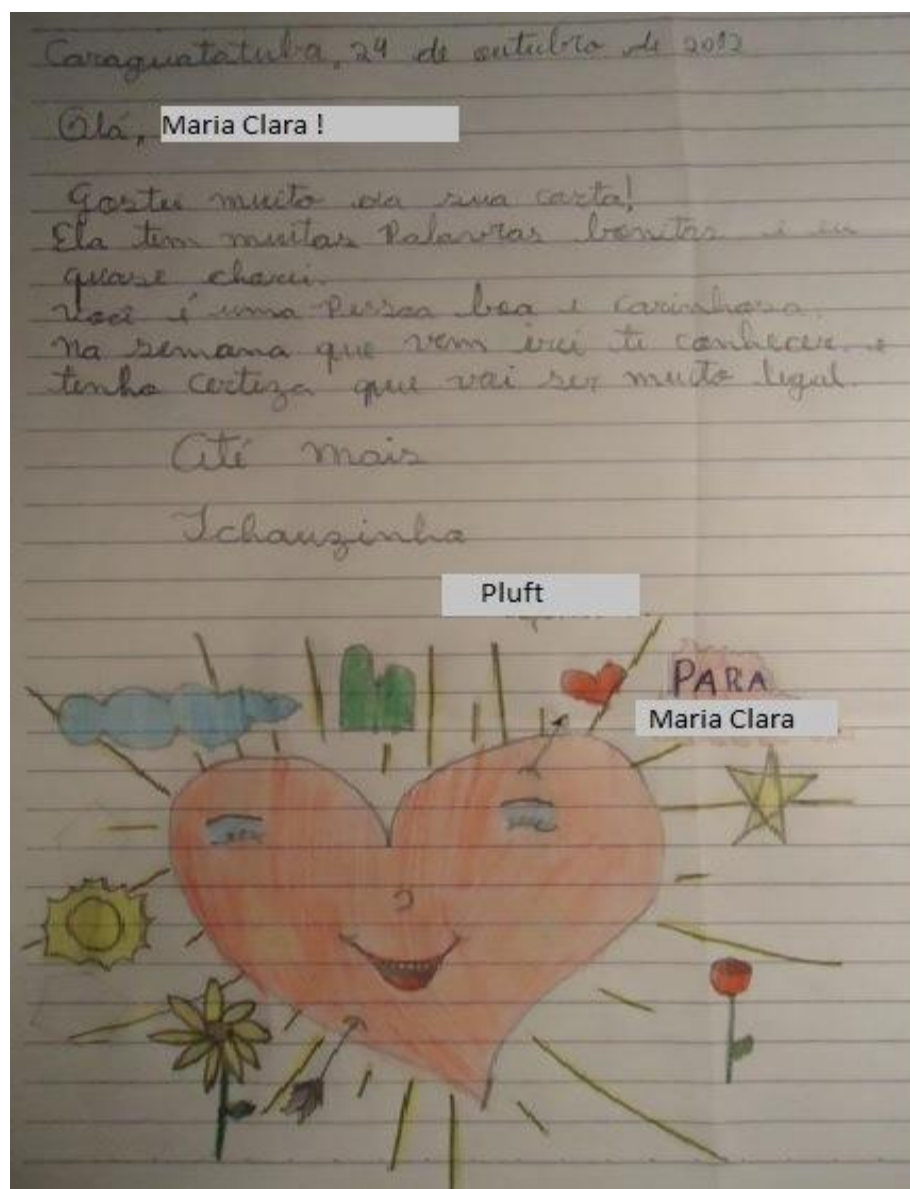 Caraguatatuba, 24 de outubro de 2012
Olá, Maria Clara !
Gostei muito da sua carta!
Ela tem muitas Palavras bonitas e eu
quase chorei.
Você é uma Pessoa boa e carinhosa.
Na semana que vem irei te conhecer e
tenho certeza que vai ser muito legal.
Até mais
Tchauzinho
Pluft
PARA
Maria Clara